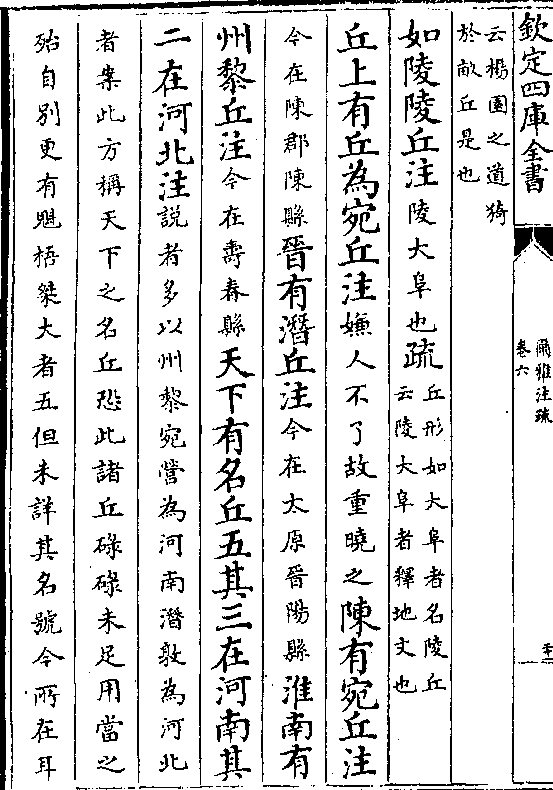 欽定四庫全書
爾雅注疏
卷六
云楊園之道猗
於畝丘是也
如陵陵丘注陵大阜也疏丘形如大阜者名陵丘
云陵大阜者釋地文也
丘上有丘為宛丘注嫌人不了故重曉之陳有宛丘注
今在陳郡陳縣晉有潛丘注今在太原晉陽縣淮南有
州黎丘注今在壽春縣天下有名丘五其三在河南其
二在河北注說者多以州黎宛營為河南潛敦為河北
者案此方稱天下之名丘恐此諸丘碌碌未足用當之
殆自別更有魁梧桀大者五但未詳其名號今所在耳